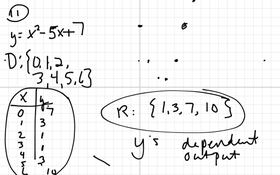 11
y = x² - 5x + 7
D: {0, 1, 2,
3, 4, 5, 6}
x y
0 7
1 3
2 1
3 1
4 3
5
10
R: {1, 3, 7, 10}
y's dependent
output